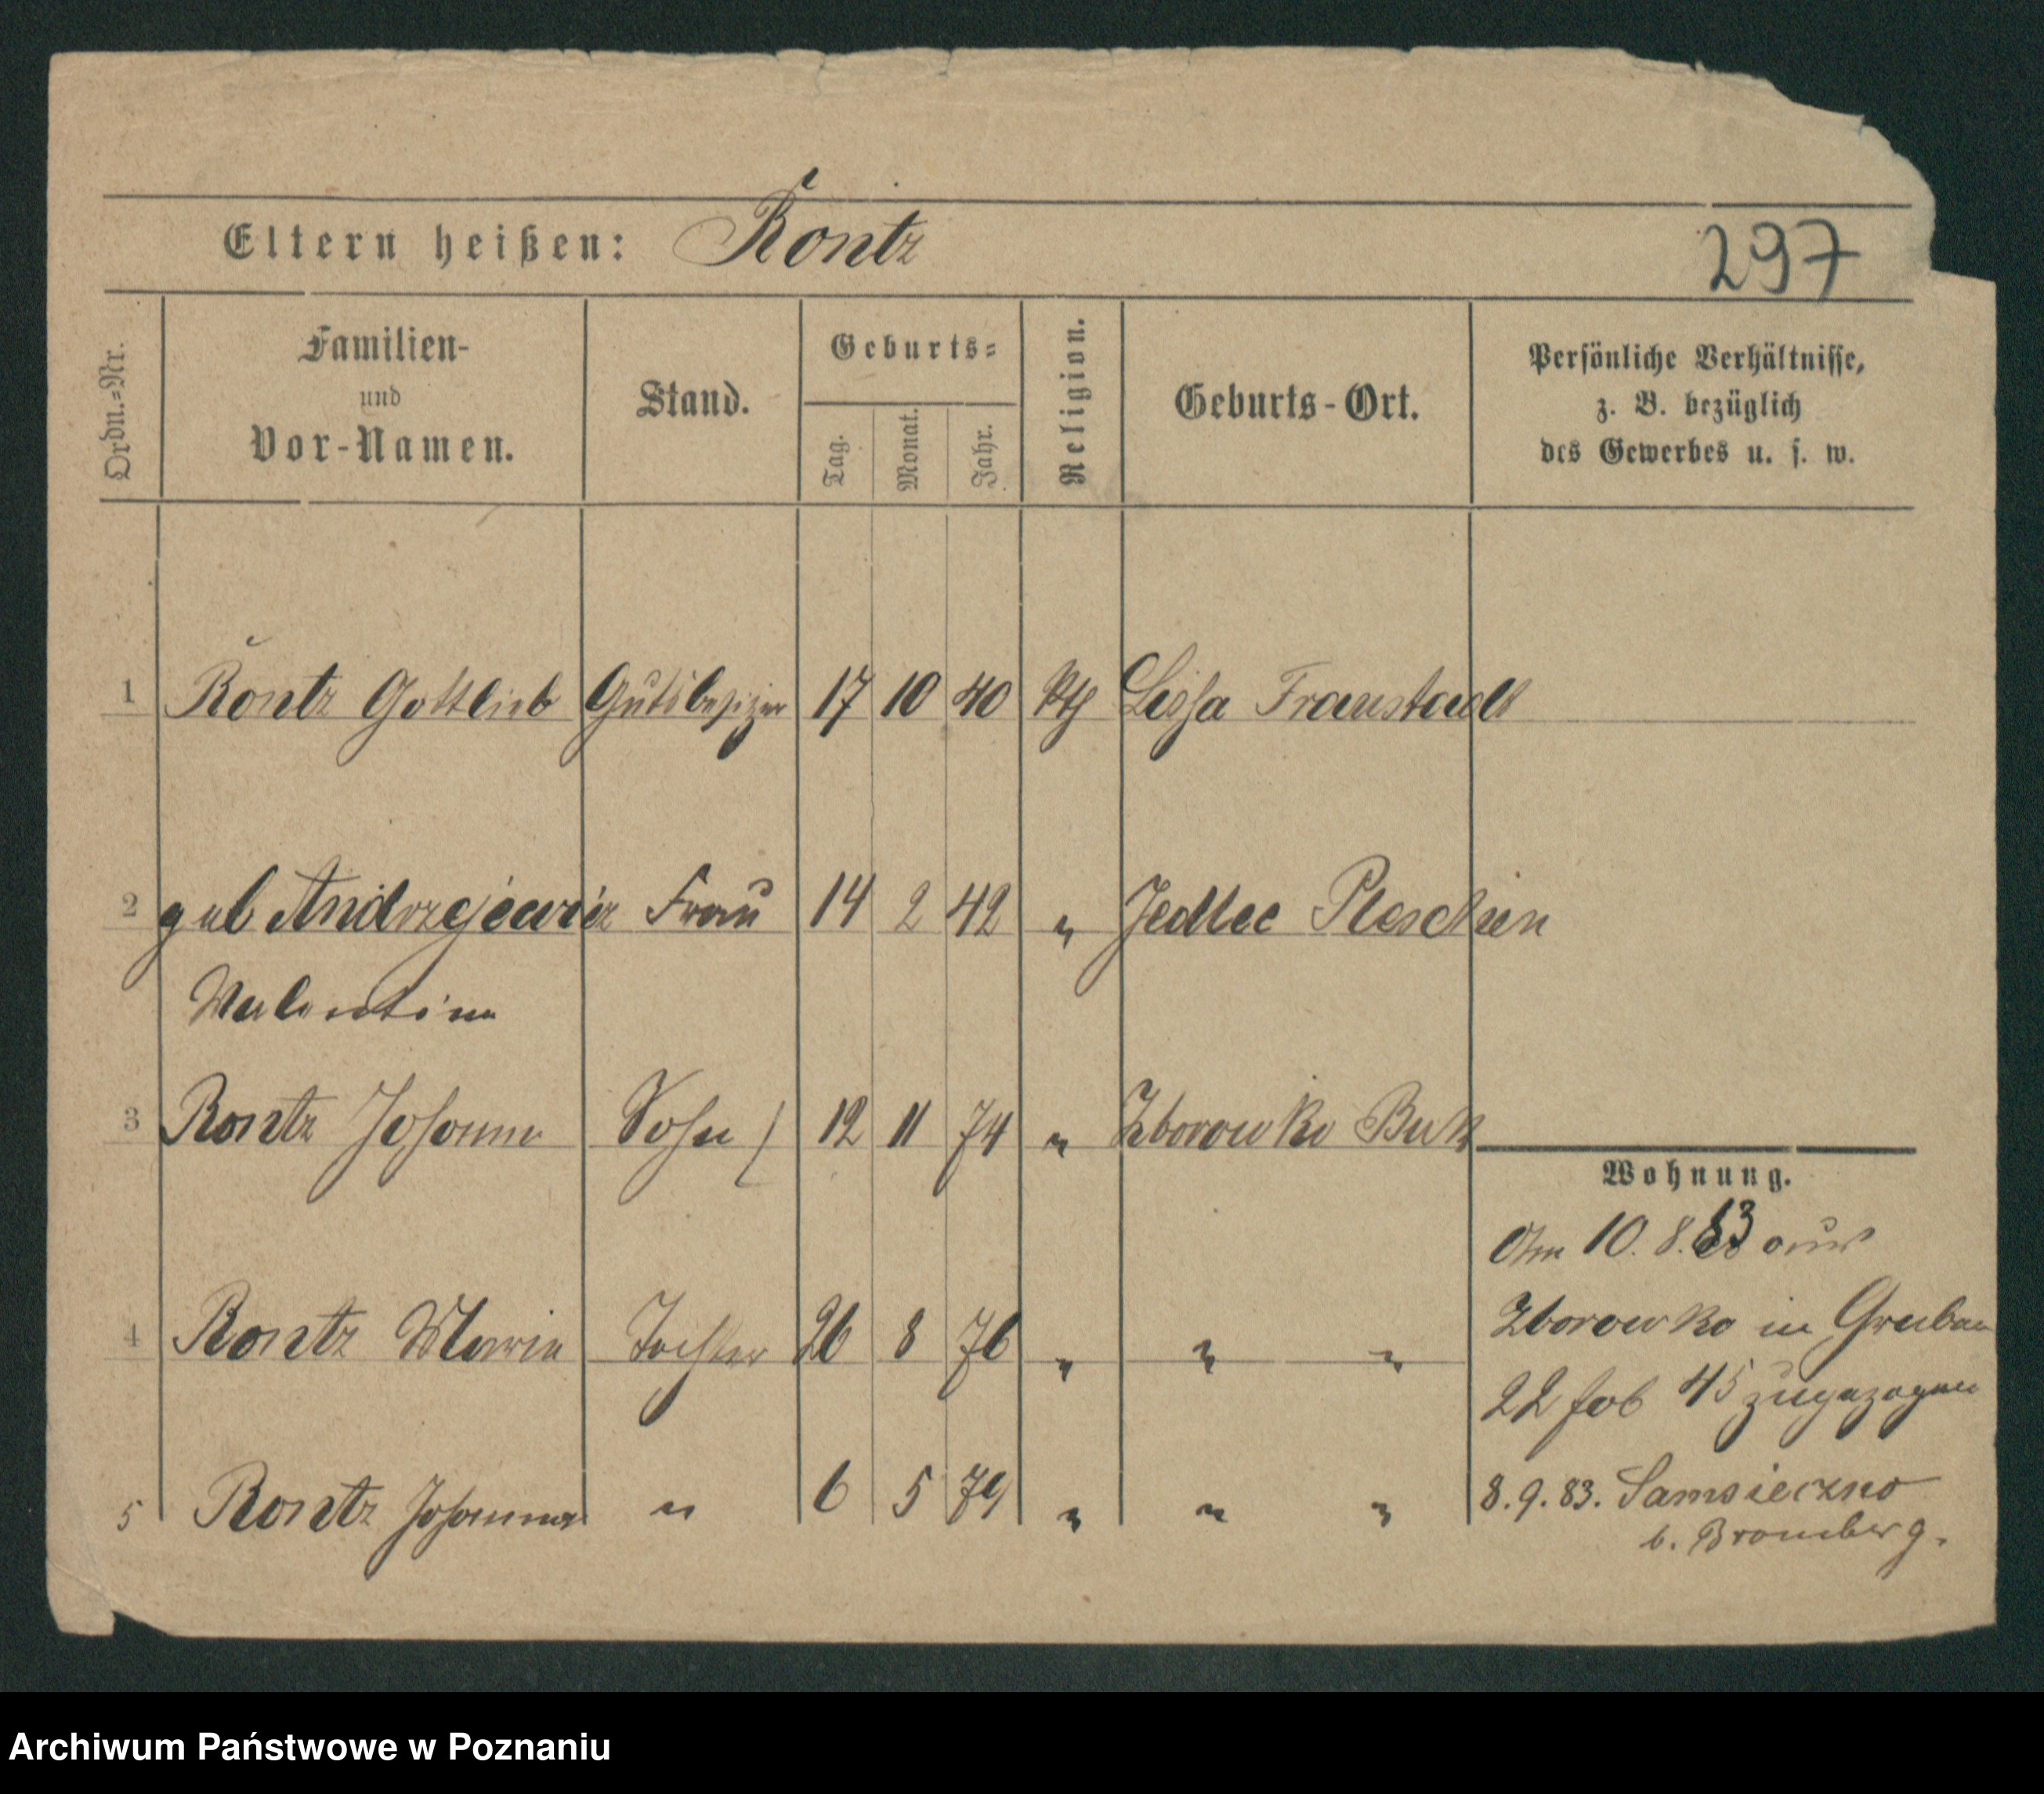 Eltern heißen: Rontz
297
Ordn.-Nr.
Familien-
und
Vor-Namen.
Stand.
Geburts-
Tag.
Monat.
Jahr.
Religion.
Geburts-Ort.
Persönliche Verhältnisse,
z. B. bezüglich
des Gewerbes u. s. w.
1 Rontz Gottlieb Gutsbesizer 17 10 40 Kth Lissa Fraustadt
2 geb Andrzejewicz Frau 14 2 42 " Jedlec Pleschen
Valentina
3 Rontz Johann Sohn 12 11 74 " Zborowko Buk
Wohnung.
Am 10. 8. 83 aus
4 Rontz Marie Tochter 26 8 76 " " "
Zborowko in Graben
22 fob 45 zugezogen
5 Rontz Johanna " 6 5 79 " " "
8. 9. 83. Samsieczno
b. Bromberg.
Archiwum Państwowe w Poznaniu